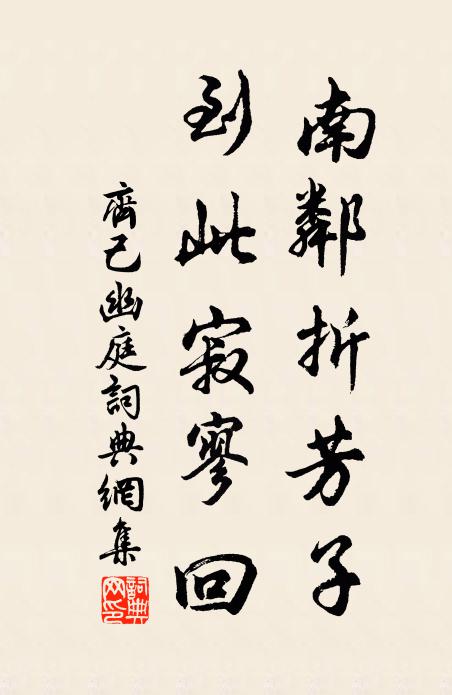 南鄰折芳子
到此寂寥回
齊己幽庭詞典網集
詞典網印